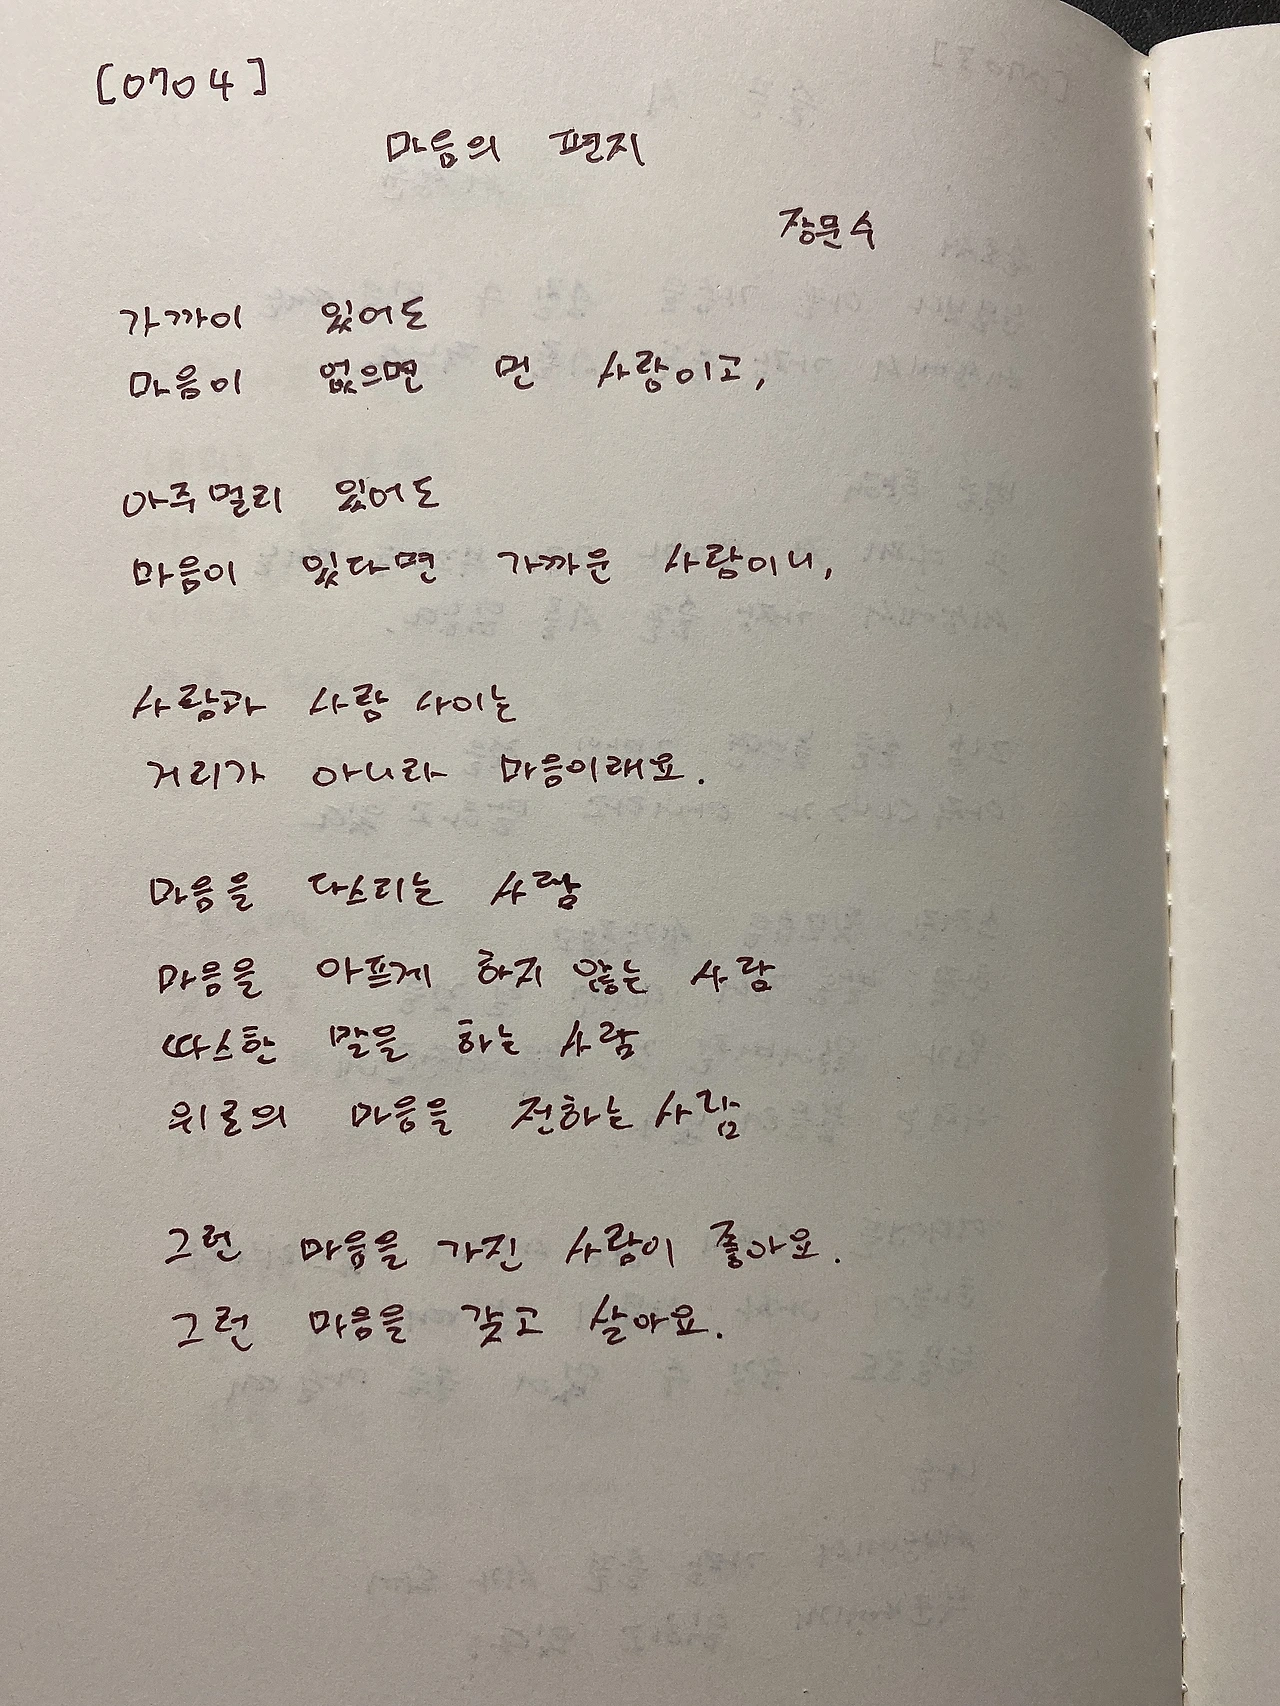 [0704]
마음의 편지
장문수
가까이 있어도
마음이 없으면 먼 사람이고,
아주 멀리 있어도
마음이 있다면 가까운 사람이니,
사람과 사람 사이는
거리가 아니라 마음이래요.
마음을 다스리는 사람
마음을 아프게 하지 않는 사람
따스한 말을 하는 사람
위로의 마음을 전하는 사람
그런 마음을 가진 사람이 좋아요.
그런 마음을 갖고 살아요.